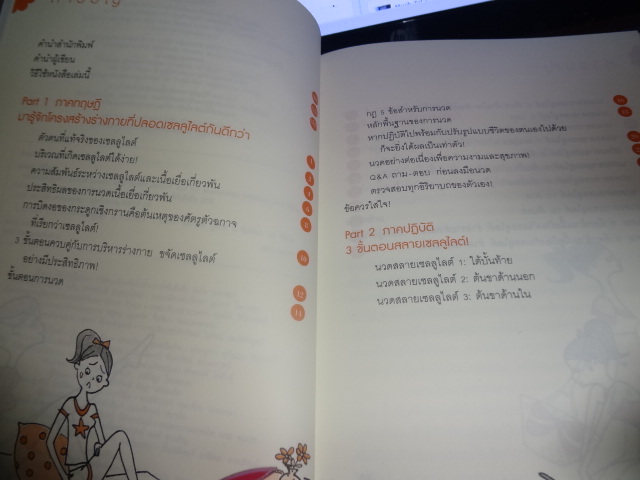 สารบัญ
คำนำสำนักพิมพ์
คำนำผู้เขียน
วิธีใช้หนังสือเล่มนี้
Part 1 ภาคทฤษฎี
มารู้จักโครงสร้างร่างกายที่ปลอดเซลลูไลต์กันดีกว่า
ตัวตนที่แท้จริงของเซลลูไลต์
บริเวณที่เกิดเซลลูไลต์ได้ง่าย!
ความสัมพันธ์ระหว่างเซลลูไลต์และเนื้อเยื่อเกี่ยวพัน
ประสิทธิผลของการนวดเนื้อเยื่อเกี่ยวพัน
การบิดงอของกระดูกเชิงกรานคือต้นเหตุของศัตรูตัวฉกาจ
ที่เรียกว่าเซลลูไลต์!
3 ขั้นตอนควบคู่กับการบริหารร่างกาย ขจัดเซลลูไลต์
อย่างมีประสิทธิภาพ! 10
ขั้นตอนการนวด 12
14
กฎ 5 ข้อสำหรับการนวด
หลักพื้นฐานของการนวด
หากปฏิบัติไปพร้อมกับปรับรูปแบบชีวิตของตนเองไปด้วย
ก็จะยิ่งได้ผลเป็นเท่าตัว!
นวดอย่างต่อเนื่องเพื่อความงามและสุขภาพ!
Q&A ถาม-ตอบ ก่อนลงมือนวด
ตรวจสอบทุกอิริยาบถของตัวเอง!
ข้อควรใส่ใจ!
Part 2 ภาคปฏิบัติ
3 ขั้นตอนสลายเซลลูไลต์!
นวดสลายเซลลูไลต์ 1: ใต้บั้นท้าย
นวดสลายเซลลูไลต์ 2: ต้นขาด้านนอก
นวดสลายเซลลูไลต์ 3: ต้นขาด้านใน